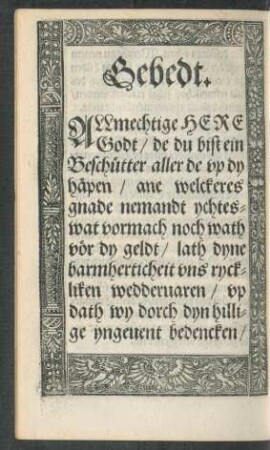 Gebedt.
ALLmechtige HERE
Godt / de du bist ein
Beschütter aller de vp dy
häpen / ane welckeres
gnade nemandt ychtes-
wat vormach noch wath
vör dy geldt / lath dyne
barmherticheit vns ryck-
liken wedderuaren / vp
dath wy dorch dyn hilli-
ge yngeuent bedencken /